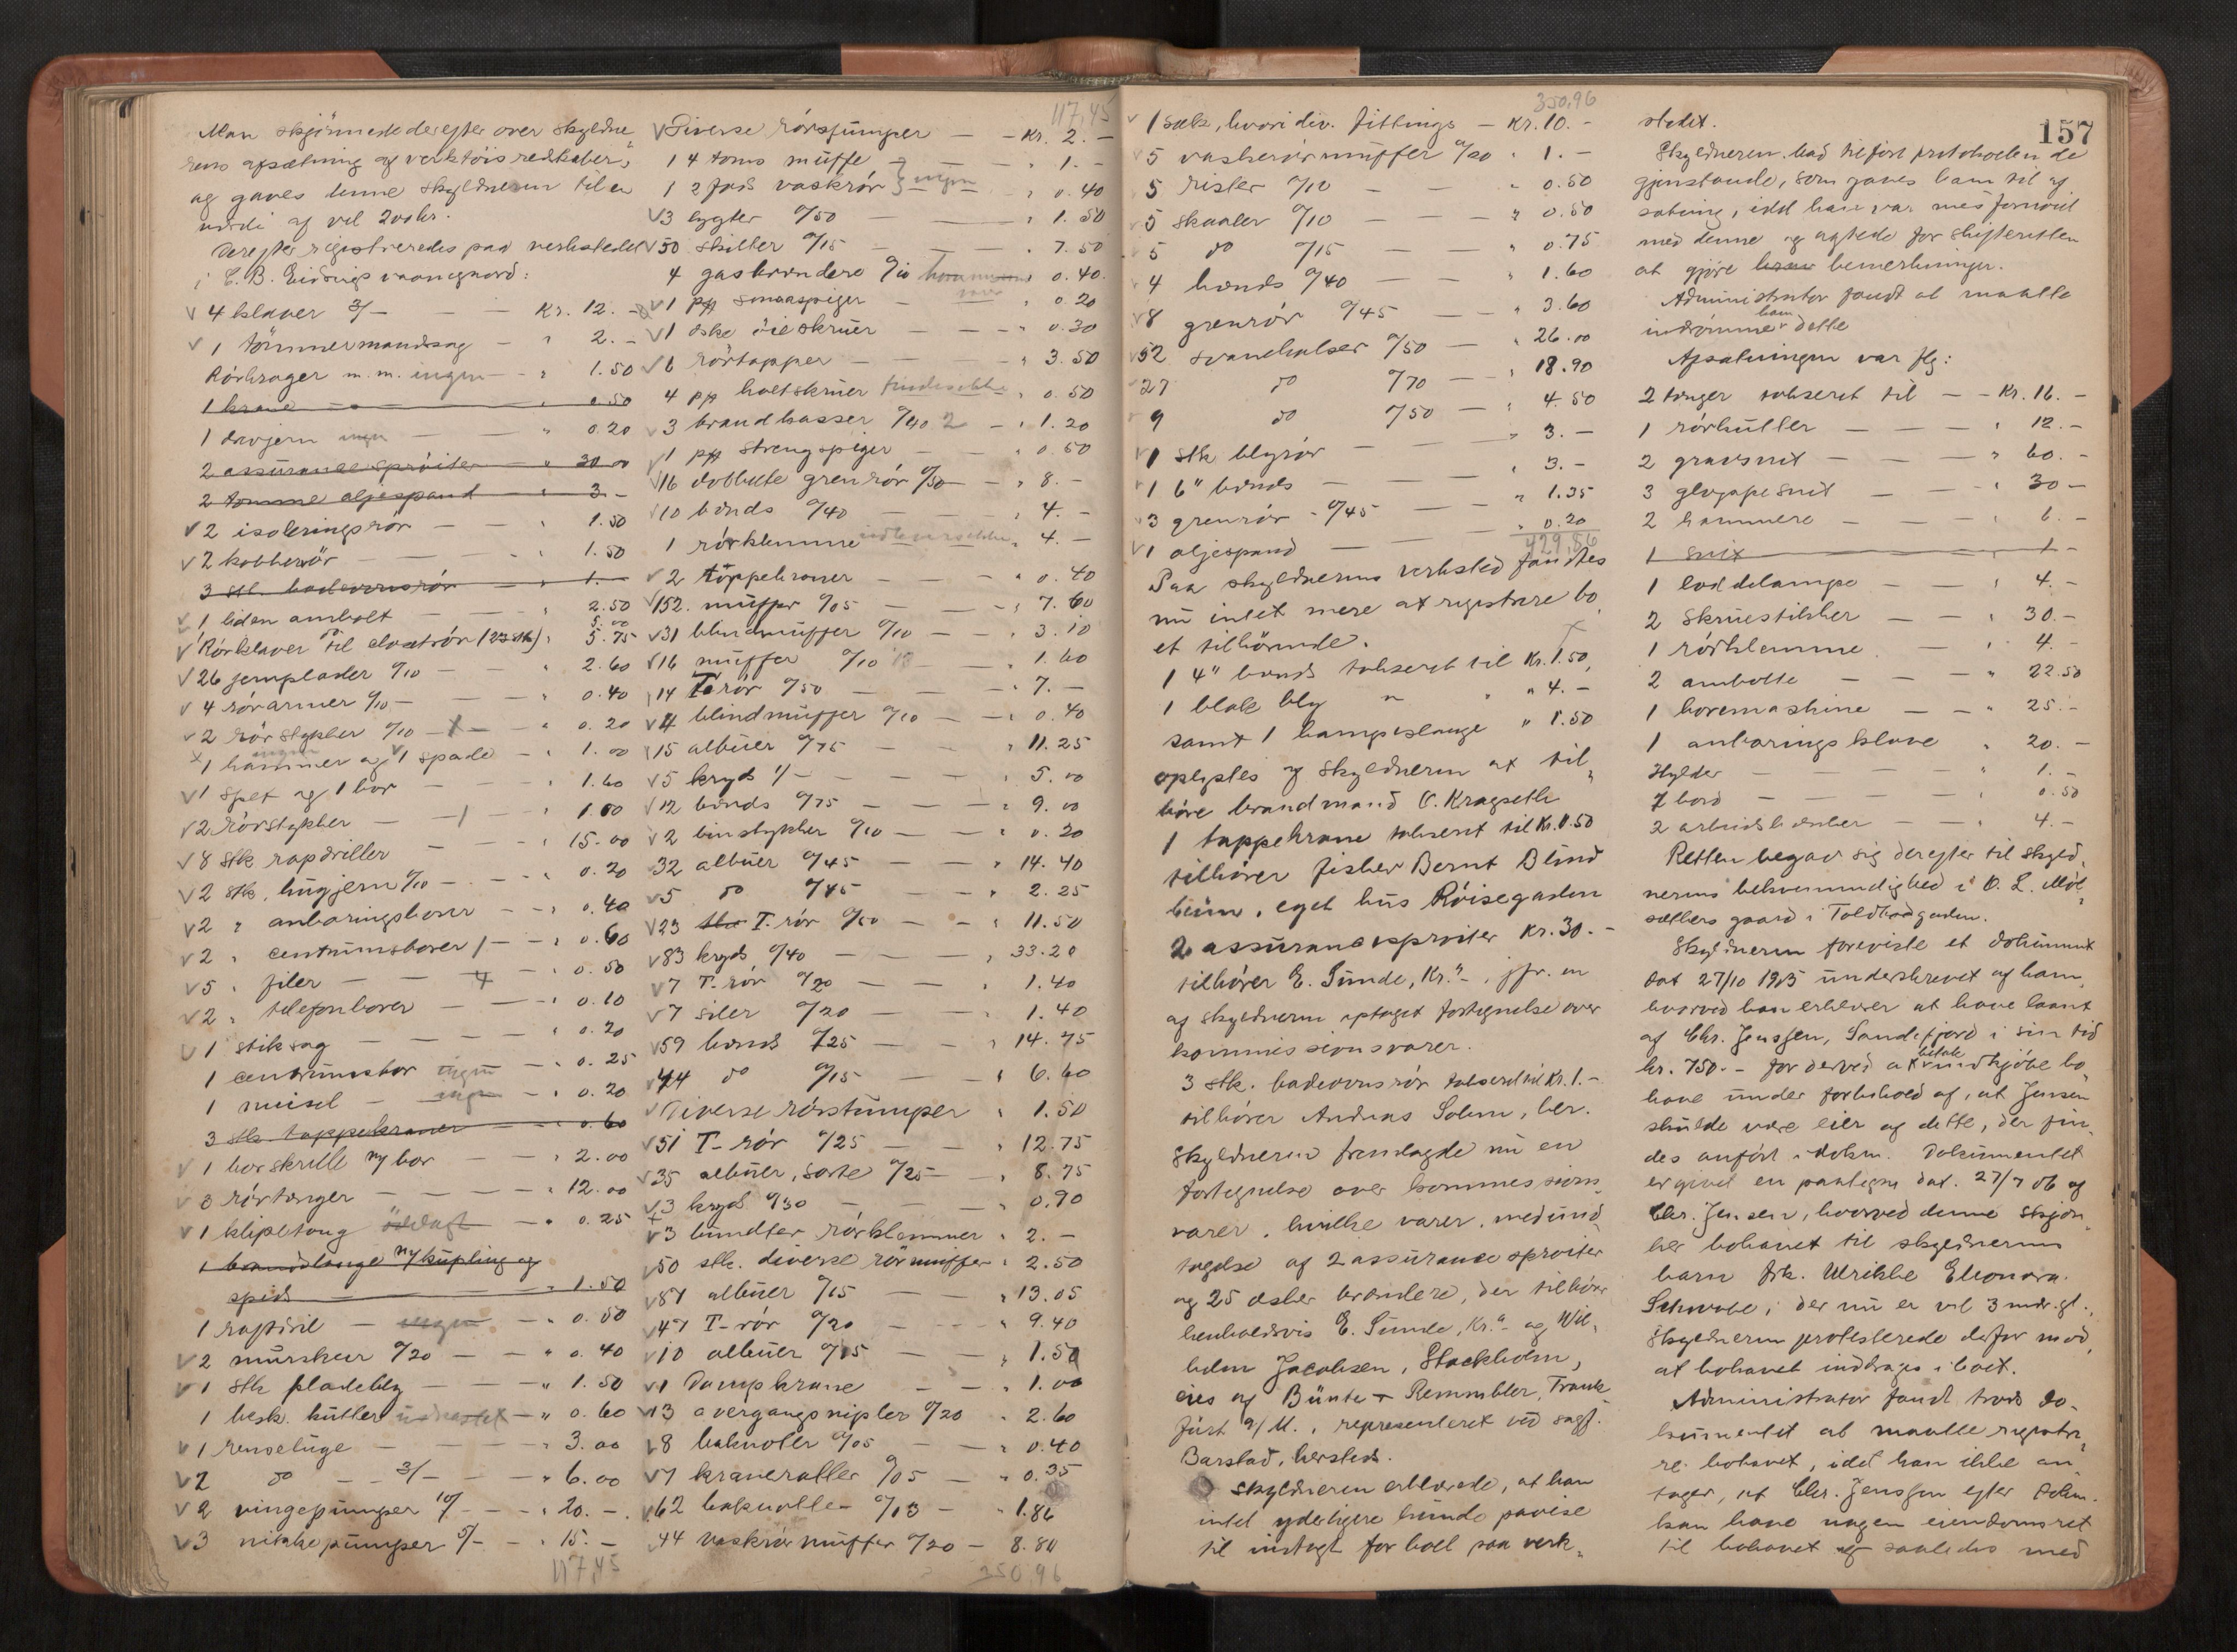 Man skjønnede derefter over skyldne
rens afsætning af verktøisredskaber,
og gaves denne skyldneren til en
værdi af vel 200 kr.
Derefter registreredes paa verkstedet
i C. B. Eidsvigs vaaningsgaard:
4 klaver 3/- — Kr. 12. -
1 tømmermandssag — " 2. -
Rørkroger m. m. ingen — " 1.50
1 krane — " 0.50
1 drivjern ingen — " 0.20
2 assurancesprøiter — " 30.00
2 tomme oljespand — " 3. -
2 isoleringsrør — " 1.50
2 kobberrør — " 1.50
3 stk. badeovnsrør — " 1. -
1 liden ambolt — " 2.50
5.00
Rørklaver til closetrør (23 stk) " 5.75
26 jernplader 0/10 — " 2.60
4 rørarmer 0/10 — " 0.40
2 rørstykker 0/10 — " 0.20
ingen
1 hammer og 1 spade — " 1.00
1 spet og 1 bor — " 1.60
2 rørstykker — " 1.00
8 stk rapdriller — " 15.00
2 stk. hugjern 0/10 — " 0.20
2 " anboringsborer — " 0.40
2 " centrumsborer — " 0.60
5 " filer — 4 — " 0.50
2 " telefonborer — " 0.10
1 stiksag — " 0.20
1 centrumsbor ingen — " 0.25
1 meisel — ingen — " 0.20
3 stk. tappekraner — 0.60
1 borskralle m/ bor — " 2.00
3 rørtænger — " 12.00
1 klipetang — " 0.25
1 brandslange m/ kupling og
spids — " 1.50
1 rapdril — ingen — " 0.50
2 murskeer 0/20 — " 0.40
1 stk pladebly — " 1.50
1 besk. kutter — " 0.60
1 rensetuge — " 3.00
2 do — 3/- — " 6.00
2 vingepumper 10/- — " 20. -
3 nikkepumper 5/- — " 15. -
117,45
117,45
Diverse rørstumper — Kr. 2. -
1 4 toms muffe — " 1. -
1 2 fods vaskrør ingen — " 0.40
3 lygter 0/50 — " 1.50
50 skilter 0/15 — " 7.50
4 gasbrændere 0/10 — " 0.40
1 pk smaaspiger — " 0.20
1 æske øieskruer — " " 0.30
6 rørtapper — " 3.50
4 pk holtskruer findes ikke " 0.50
3 brandkasser 0/40 2 — " 1.20
1 pk strengspiger — " 0.50
16 dobbelte grenrør 0/50 — " 8. -
10 bænds 0/40 — " 4. -
1 rørklemme — " 4. -
2 tøppekraner — " 0.40
152. muffer 0/05 — " 7.60
31 blindmuffer 0/10 — " 3.10
16 muffer 0/10 — " 1.60
14 T rør 0/50 — " 7. -
4 blindmuffer 0/10 — " 0.40
15 albuer 0/75 — " 11.25
5 kryds 1/- — " 5.00
12 bænds 0/75 — " 9.00
2 binstykker 0/10 — " 0.20
32 albuer 0/45 — " 14.40
5 do 0/45 — " 2.25
23 stk T. rør 0/50 — " 11.50
83 kryds 0/40 — " 33.20
7 T-rør 0/20 — " 1.40
7 siler 0/20 — " 1.40
59 bænds 0/25 — " 14.75
44 do 0/15 — " 6.60
Diverse rørstumper " 1.50
51 T-rør 0/25 — " 12.75
35 albuer, sorte 0/25 — " 8.75
3 kryds 0/30 — " 0.90
3 bundter rørklemmer " 2. -
50 stk. diverse rørmuffer " 2.50
87 albuer 0/15 — " 13.05
47 T-rør 0/20 — " 9.40
10 albuer 0/15 — " 1.50
1 Dampkrane — " 1.00
13 overgangsnipler 0/20 " 2.60
8 baknøtter 0/05 — " 0.40
7 kranerutter 0/05 — " 0.35
62 baknøtter 0/03 — " 1.86
44 vaskrørmuffer 0/20 — 8.80
350.96
350,96
1 sæk, hvori div. fittings — Kr. 10. -
5 vaskerørmuffer 0/20 " 1. -
5 rister 0/10 — " 0.50
5 skaaler 0/10 — " 0.50
5 do 0/15 — " 0.75
4 bænds 0/40 — " 1.60
8 grenrør 0/45 — " 3.60
52 svanehalser 0/50 — " 26.00
27 do 0/70 — " 18.90
9 do 0/50 — " 4.50
1 stk blyrør — " 3. -
1 6" bænds — " 3. -
3 grenrør 0/45 — " 1.35
1 oljespand — " 0.20
429,86
Paa skyldnerens verksted fandtes
nu intet mere at registrere bo,
et tilhørende.
1 4" bænds takseret til Kr. 1.50,
1 blok bly " " " 4. -
samt 1 hampeslange " 1.50
oplystes af skyldneren at til,
høre brandmand O. Kragseth
1 tappekrane takseret til Kr. 0.50
tilhører fisker Bernt Blind
heim, eget hus Røisegaden
2 assurancesprøiter Kr. 30. -
tilhører E. Sunde, Kr.a, jfr. en
af skyldneren optaget fortegnelse over
kommissionsvarer.
3 stk. badeovnsrør takseret til Kr. 1. -
tilhører Andreas Solem, her.
Skyldneren fremlagde nu en
fortegnelse over kommissions,
varer, hvilke varer, med und,
tagelse af 2 assurance sprøiter
og 25 æsker brændere, der tilhører
henholdsvis E. Sunde, Kr.a og Wil,
helm Jacobsen, Stockholm,
eies af Bünte & Remmbler, Frank
fürt a/M., representeret ved sagf.
Barstad, hersteds.
Skyldneren erklærede, at han
intet yderligere kunde paavise
til indtægt for boet paa verk,
157
stedet.
Skyldneren bad tilført protokollen de
gjenstande, som gaves ham til af
sætning, idet han var misfornøiet
med denne og agtede for skifteretten
at gjøre bemerkninger.
Administrator fandt at maatte
ham
indrømme dette
Afsætningen var flg:
2 tænger takseret til — Kr. 16. -
1 rørkutter — " 12. -
2 gravsnit — " 60. -
3 gevjapesnit — " 30 -
2 hammere — " 6. -
1 snit — 1 -
1 loddelampe — " 4. -
2 skruestikker — " 30. -
1 rørklemme — " 4. -
2 ambolte — " 22.50
1 boremaskine — " 25. -
1 anboringsklave " 20. -
Hylder — " 1. -
7 bord — " 0.50
2 arbeidsbænker — " 4. -
Retten begav sig derefter til skyld,
nerens bekvemmelighed i O. L. Møl,
sætters gaard i Toldbodgaden.
Skyldneren foreviste et dokument
dat 27/10 1905 underskrevet af ham,
hvorved han erklærer at have laant
af Chr. Jenssen, Sandefjord i sin tid
kr. 750. - for derved at indkjøbe bo,
have under forbehold af, at Jensen
skulde være eier af dette, der fin,
des anført i dokm. Dokumentet
er givet en paategn. dat. 27/7 06 af
Chr. Jensen, hvorved denne skjæn,
ker bohavet til skyldnerens
barn frk. Ulrikke Eleonora
Schwabe, der nu er vel 3 mdr. gl.,
Skyldneren protesterede derfor mod,
at bohavet inddrages i boet.
Administrator fandt, trods do-
kumentet at maatte registre,
re bohavet, idet han ikke an,
tager, at Chr. Jenssen efter dokm.
kan have nogen eiendomsret
til bohavet og saaledes med